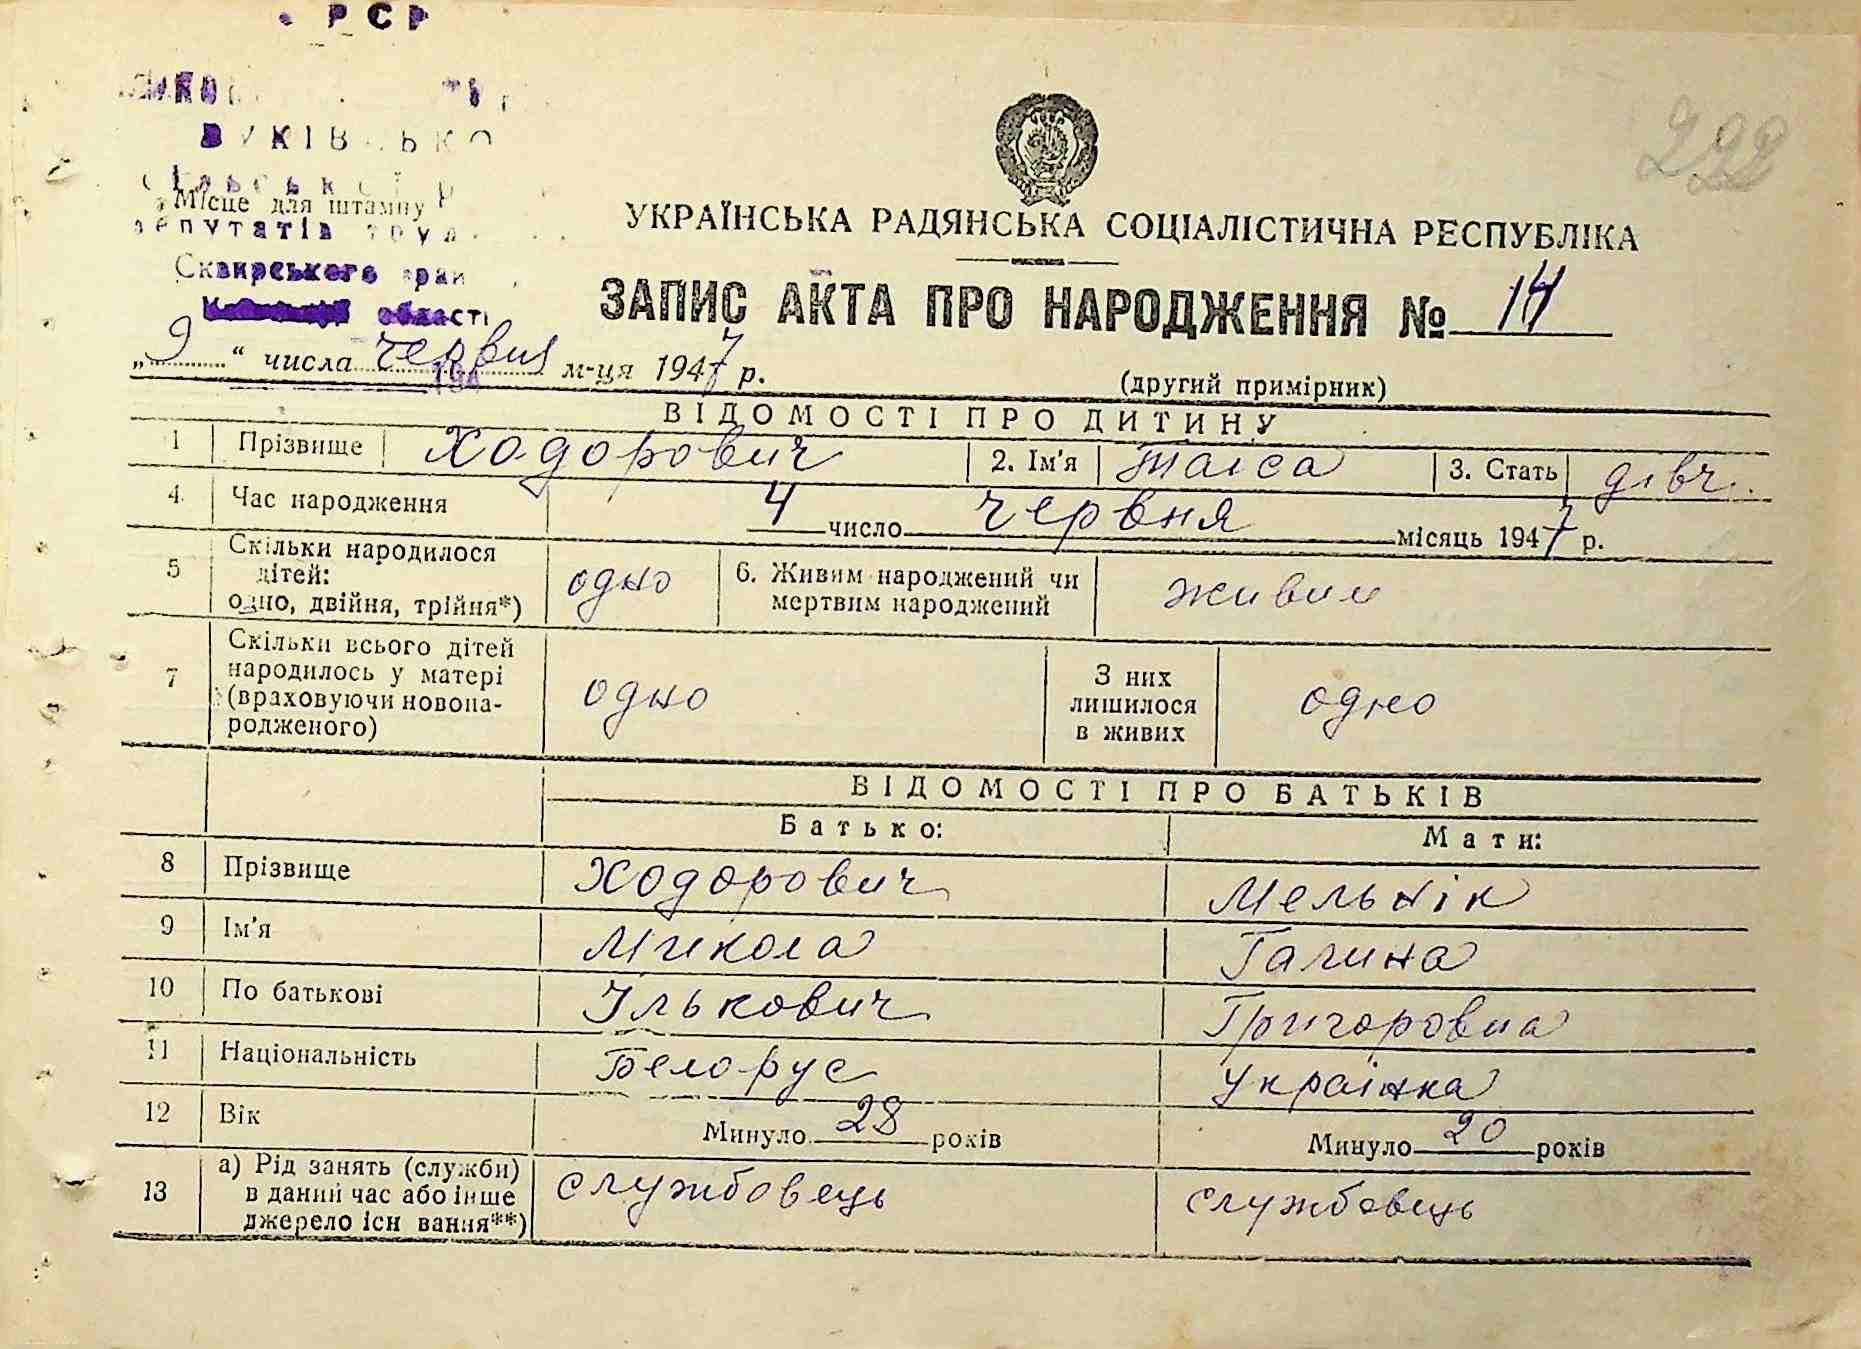 РСР
222
Місце для штампу
депутатів
Сквирського
області
УКРАЇНСЬКА РАДЯНСЬКА СОЦІАЛІСТИЧНА РЕСПУБЛІКА
ЗАПИС АКТА ПРО НАРОДЖЕННЯ № 14
„9“ числа червня м-ця 1947 р.
(другий примірник)
ВІДОМОСТІ ПРО ДИТИНУ
1 Прізвище Ходорович 2. Ім'я Таїса 3. Стать дівч.
4. Час народження 4 число червня місяць 1947 р.
5 Скільки народилося дітей: одно, двійня, трійня*) одно 6. Живим народжений чи мертвим народжений живим
7 Скільки всього дітей народилось у матері (враховуючи новона-родженого) одно З них лишилося в живих одно
ВІДОМОСТІ ПРО БАТЬКІВ
Батько: Мати:
8 Прізвище Ходорович Мельнік
9 Ім'я Микола Галина
10 По батькові Ількович Григоровна
11 Національність Белорус Українка
12 Вік Минуло 28 років Минуло 20 років
13 а) Рід занять (служби) в даний час або інше джерело існ вання**) службовець службовець